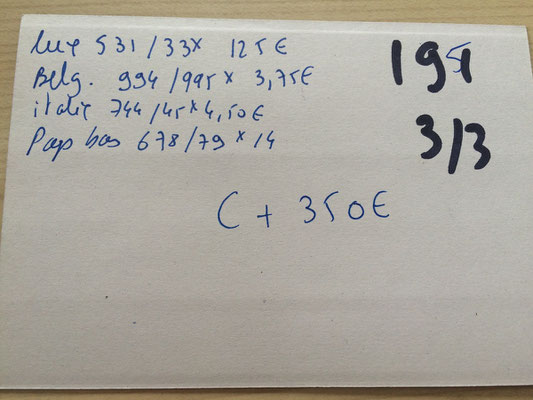 Lux 531/33x 125€
Belg. 994/995x 3,75€
italie 744/45x4,50€
Pays bas 678/79x14
3/3
C + 350€